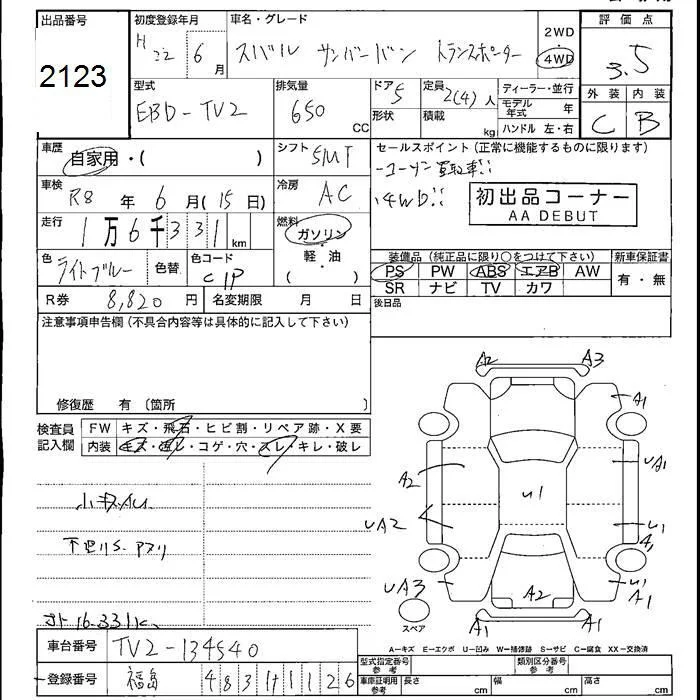 出品番号 初度登録年月 車名・グレード 2WD 評価点
2123 H22 6月 スバル サンバーバン トランスポーター 4WD 3.5
型式 排気量 ドア 定員 ディーラー・並行 外装 内装
EBD-TV2 650 CC 5 2(4)人 モデル年式 年 C B
形状 積載 kg ハンドル 左・右
車歴 シフト セールスポイント(正常に機能するものに限ります)
自家用・( ) 5MT -ユーザー買取車!!
車検 冷房 ・4WD!!
R8年 6月(15日) AC 初出品コーナー
AA DEBUT
走行 燃料
1万6千331km ガソリン・軽油
装備品(純正品に限り○をつけて下さい) 新車保証書
色 色替 色コード ( ) PS PW ABS エアB AW 有・無
ライトブルー C1P SR ナビ TV カワ
R券 8,820円 名変期限 月 日 後日品
注意事項申告欄(不具合内容等は具体的に記入して下さい)
修復歴 有 (箇所 )
検査員記入欄 FW キズ・飛石・ヒビ割・リペア跡・X要
内装 キズ・汚レ・コゲ・穴・スレ・キレ・破レ
A2 A3
A1
A2 U1 UA1
小キズAU
UA2 U1
下廻りS.アヌリ
UA3 A2 U1
A1
スペア A1 A1
メーター16.331K
A-キズ E-エクボ U-凹み W-補修跡 S-サビ C-腐食 XX-交換済
車台番号 TV2-134540
型式指定番号 参考 類別区分番号 参考
登録番号 福島 483 1126
車庫証明用 参考 長さ cm 幅 cm 高さ cm